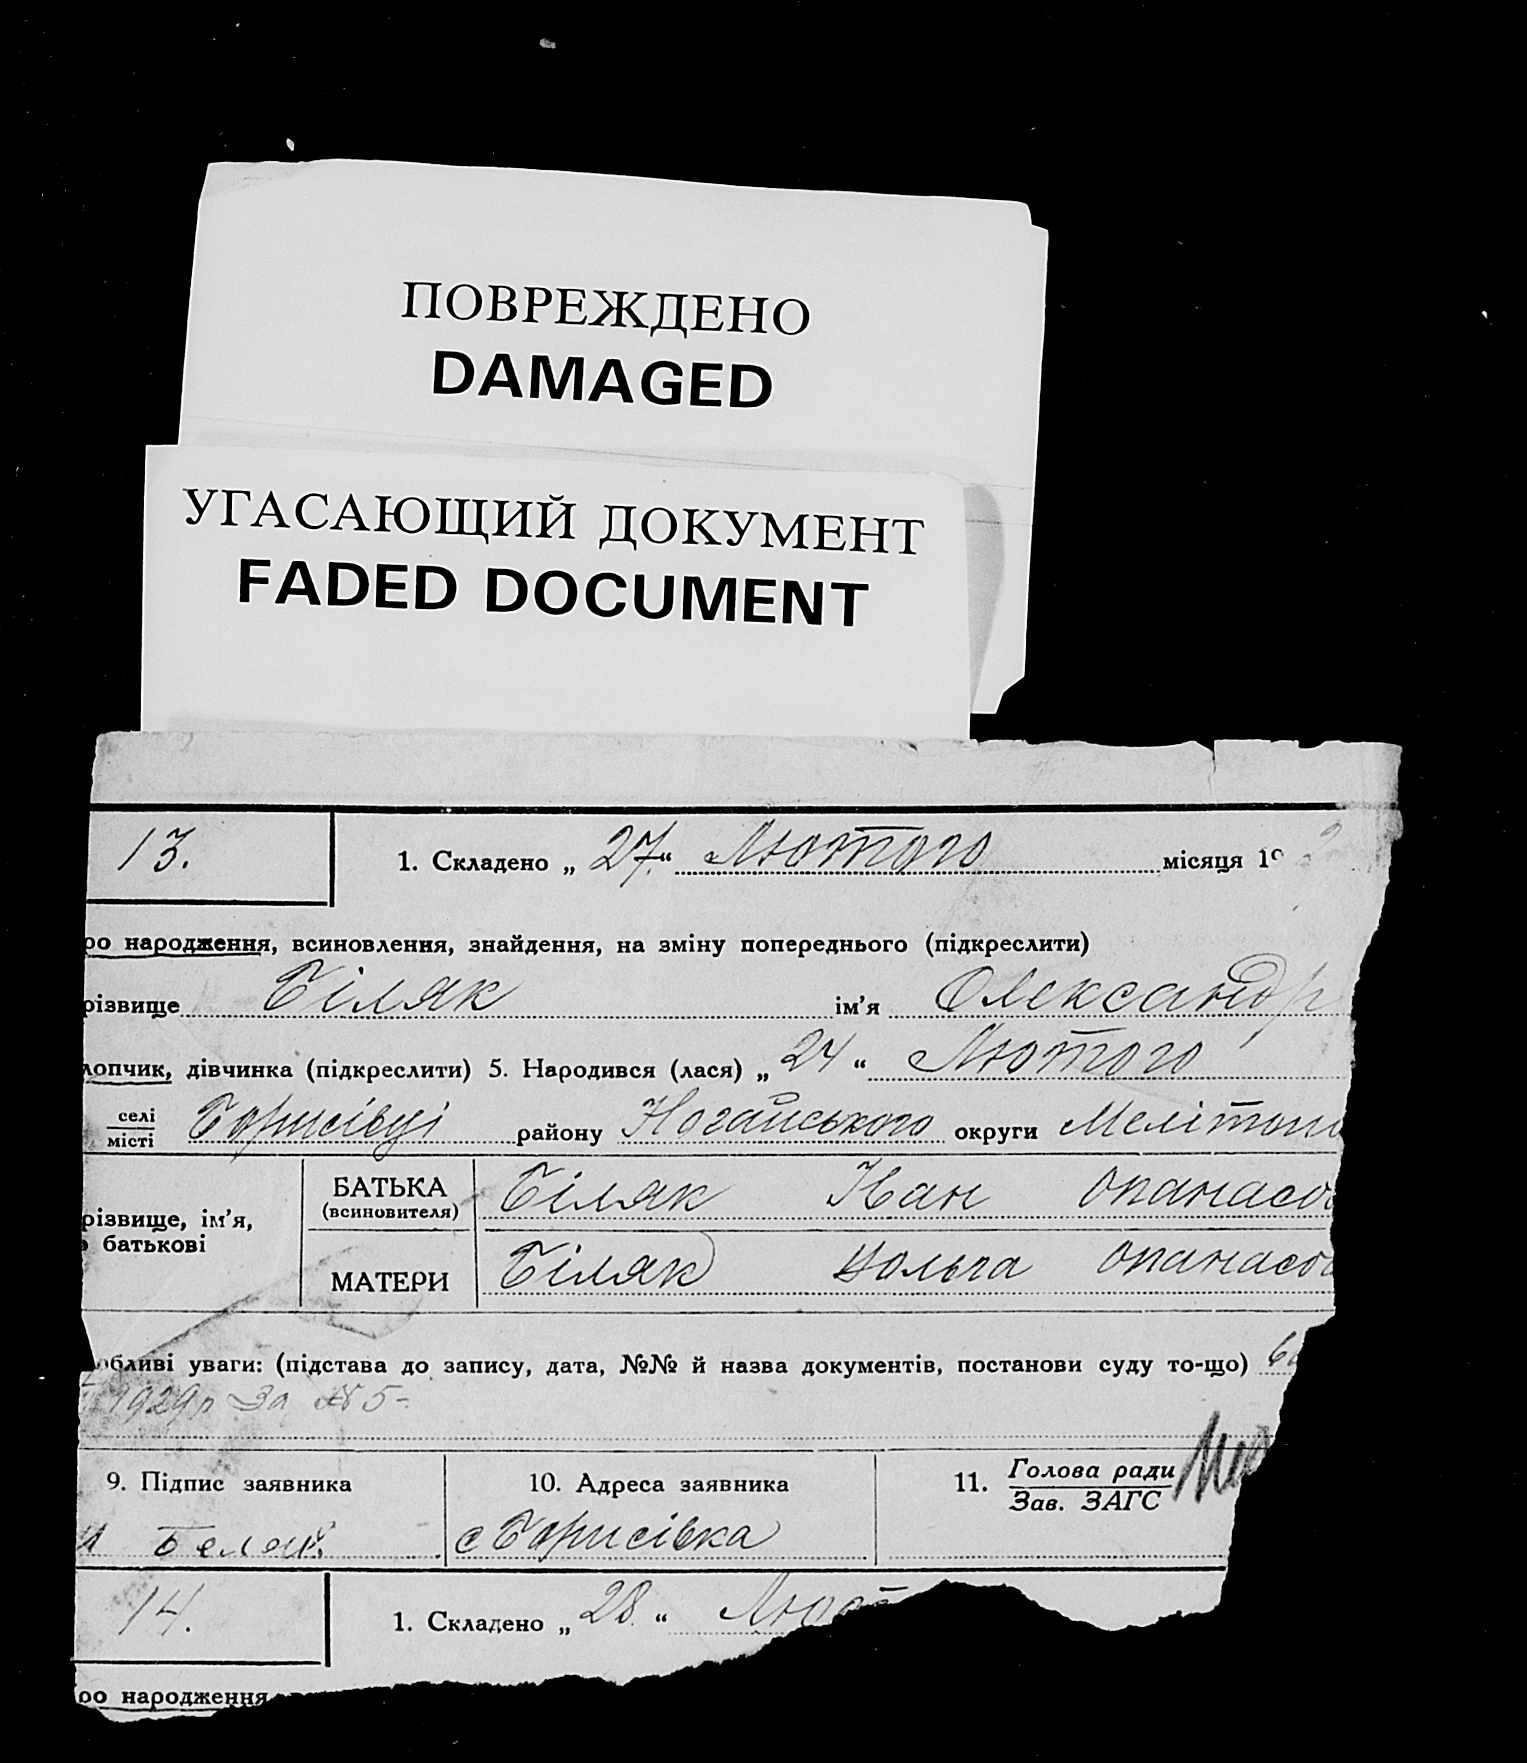 ПОВРЕЖДЕНО
DAMAGED
УГАСАЮЩИЙ ДОКУМЕНТ
FADED DOCUMENT
13. 1. Складено „ 27. “ Лютого місяця 19
ро народження, всиновлення, знайдення, на зміну попереднього (підкреслити)
різвище Біляк ім’я Олександр
лопчик, дівчинка (підкреслити) 5. Народився (лася) „ 24 “ Лютого
селі
місті Борисівці району Ногайського округи Меліто
різвище, ім’я,
батькові
БАТЬКА
(всиновителя) Біляк Иван Опанасо
МАТЕРИ Біляк Вольга Опанасо
обливі уваги: (підстава до запису, дата, №№ й назва документів, постанови суду то-що)
1929р За № 5-
9. Підпис заявника 10. Адреса заявника 11. Голова ради
Зав. ЗАГС
с Борисівка
14. 1. Складено „ 28 “ Лют
ро народження